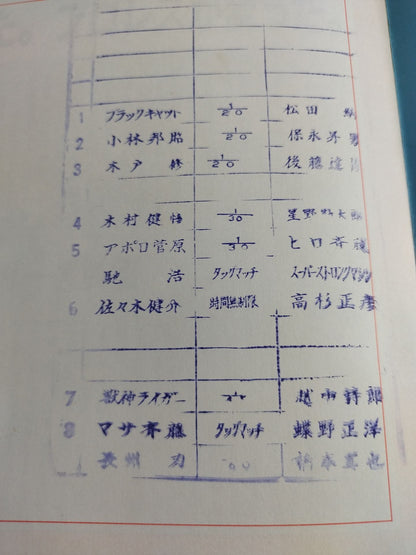 1 ブラックキャット 1/20 松田 納
2 小林邦昭 1/20 保永昇男
3 木戸 修 1/20 後藤達俊
4 木村健悟 1/30 星野勘太郎
5 アポロ菅原 1/30 ヒロ斉藤
馳 浩 タッグマッチ スーパーストロングマシン
6 佐々木健介 時間無制限 高杉正彦
7 獣神ライガー 越中詩郎
8 マサ斉藤 タッグマッチ 蝶野正洋
長州 力 60